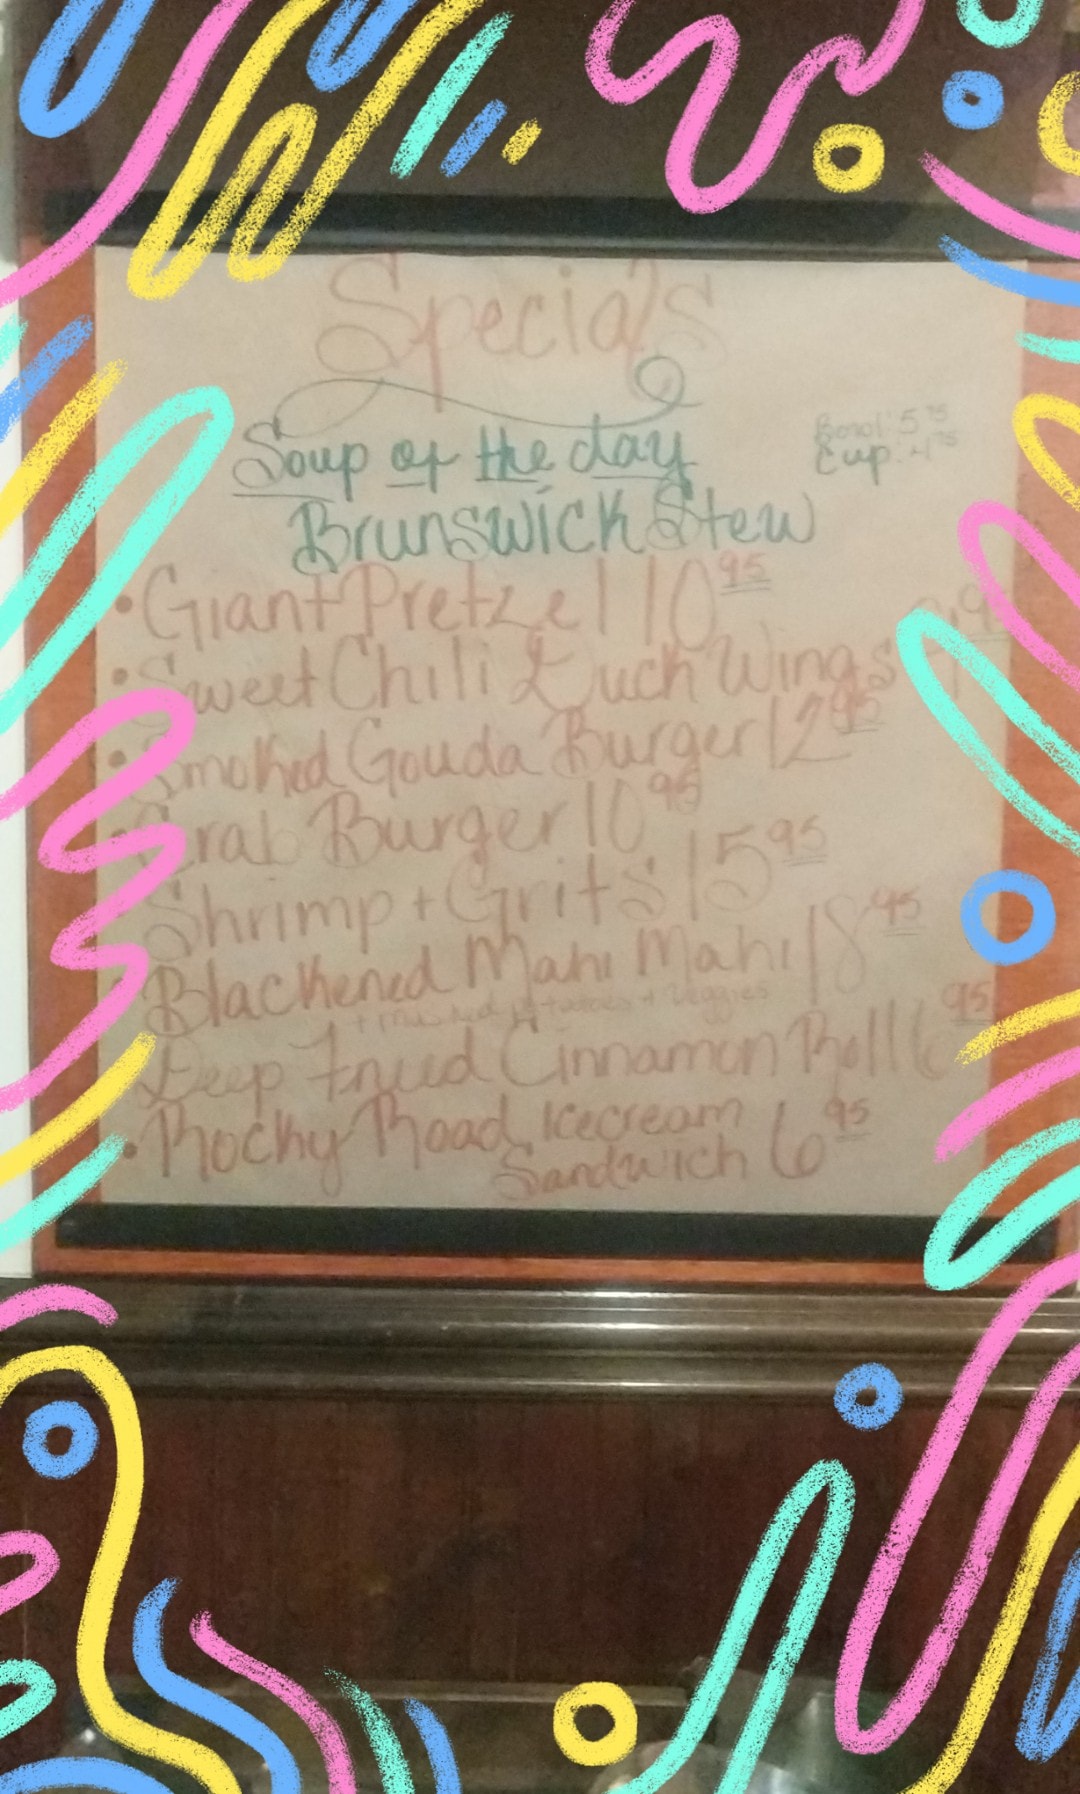 Specials
Soup of the day
Bowl: 5.75
Cup: 4.75
Brunswick Stew
• Giant Pretzel 10 95
• Sweet Chili Duck Wings
• Smoked Gouda Burger 12 95
• Crab Burger 10 95
Shrimp + Grits 15 95
Blackened Mahi Mahi 18 95
+ mashed potatoes + veggies
Deep Fried Cinnamon Roll 6 95
• Rocky Road Icecream
Sandwich 6 95